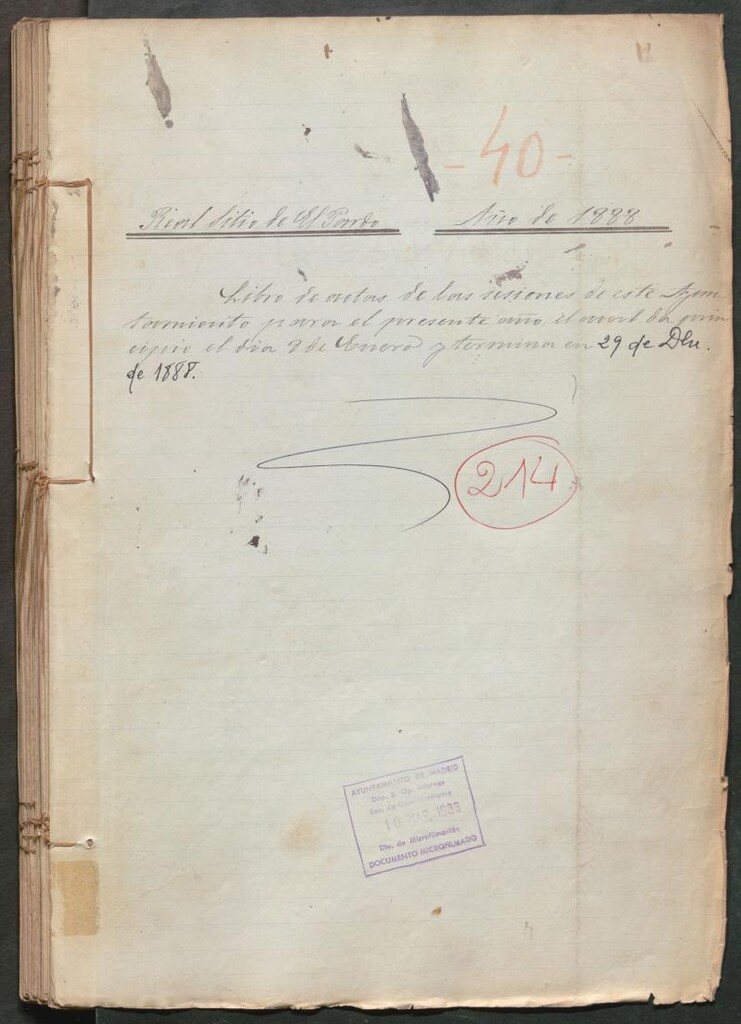 - 40 -
Real Sitio de El Pardo Año de 1888
Libro de actas de las sesiones de este Ayun
tamiento para el presente año, el cual da prin
cipio el dia 8 de Enero y termina en 29 de Dbre.
de 1888.
214
AYUNTAMIENTO DE MADRID
Div. de Microfilmación
DOCUMENTO MICROFILMADO